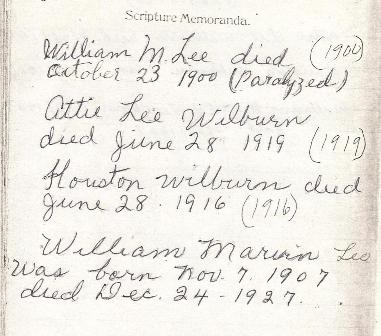 Scripture Memoranda.
William M. Lee died (1900)
October 23 1900 (Paralyzed)
Attie Lee Wilburn
died June 28 1919 (1919)
Houston Wilburn died
June 28 - 1916 (1916)
William Marvin Lee
was born Nov. 7. 1907
died Dec. 24 - 1927.